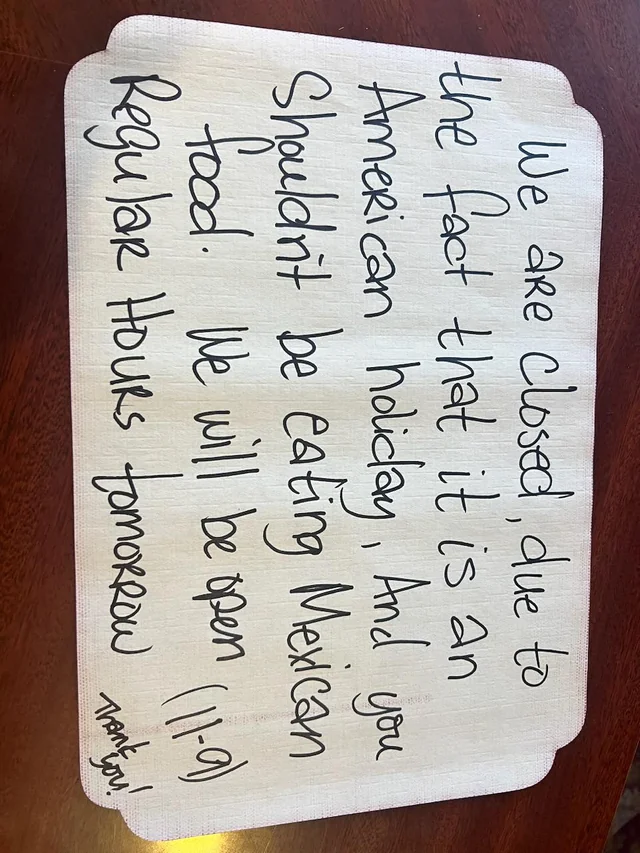 We are closed, due to
the fact that it is an
American holiday, And you
Shouldn't be eating Mexican
food. We will be open (11-9)
Regular Hours tomorrow Thank you!